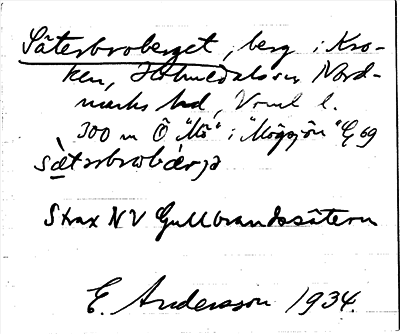 Säterbroberget, berg i Kro-
ken, Holmedals sn Nord-
marks hd, Vrml l.
300 m Ö "Mö" i "Mögsjön" G 69
sä̀tərbrobǽrjə
Strax NV Gullbrandssätern
E. Andersson 1934.